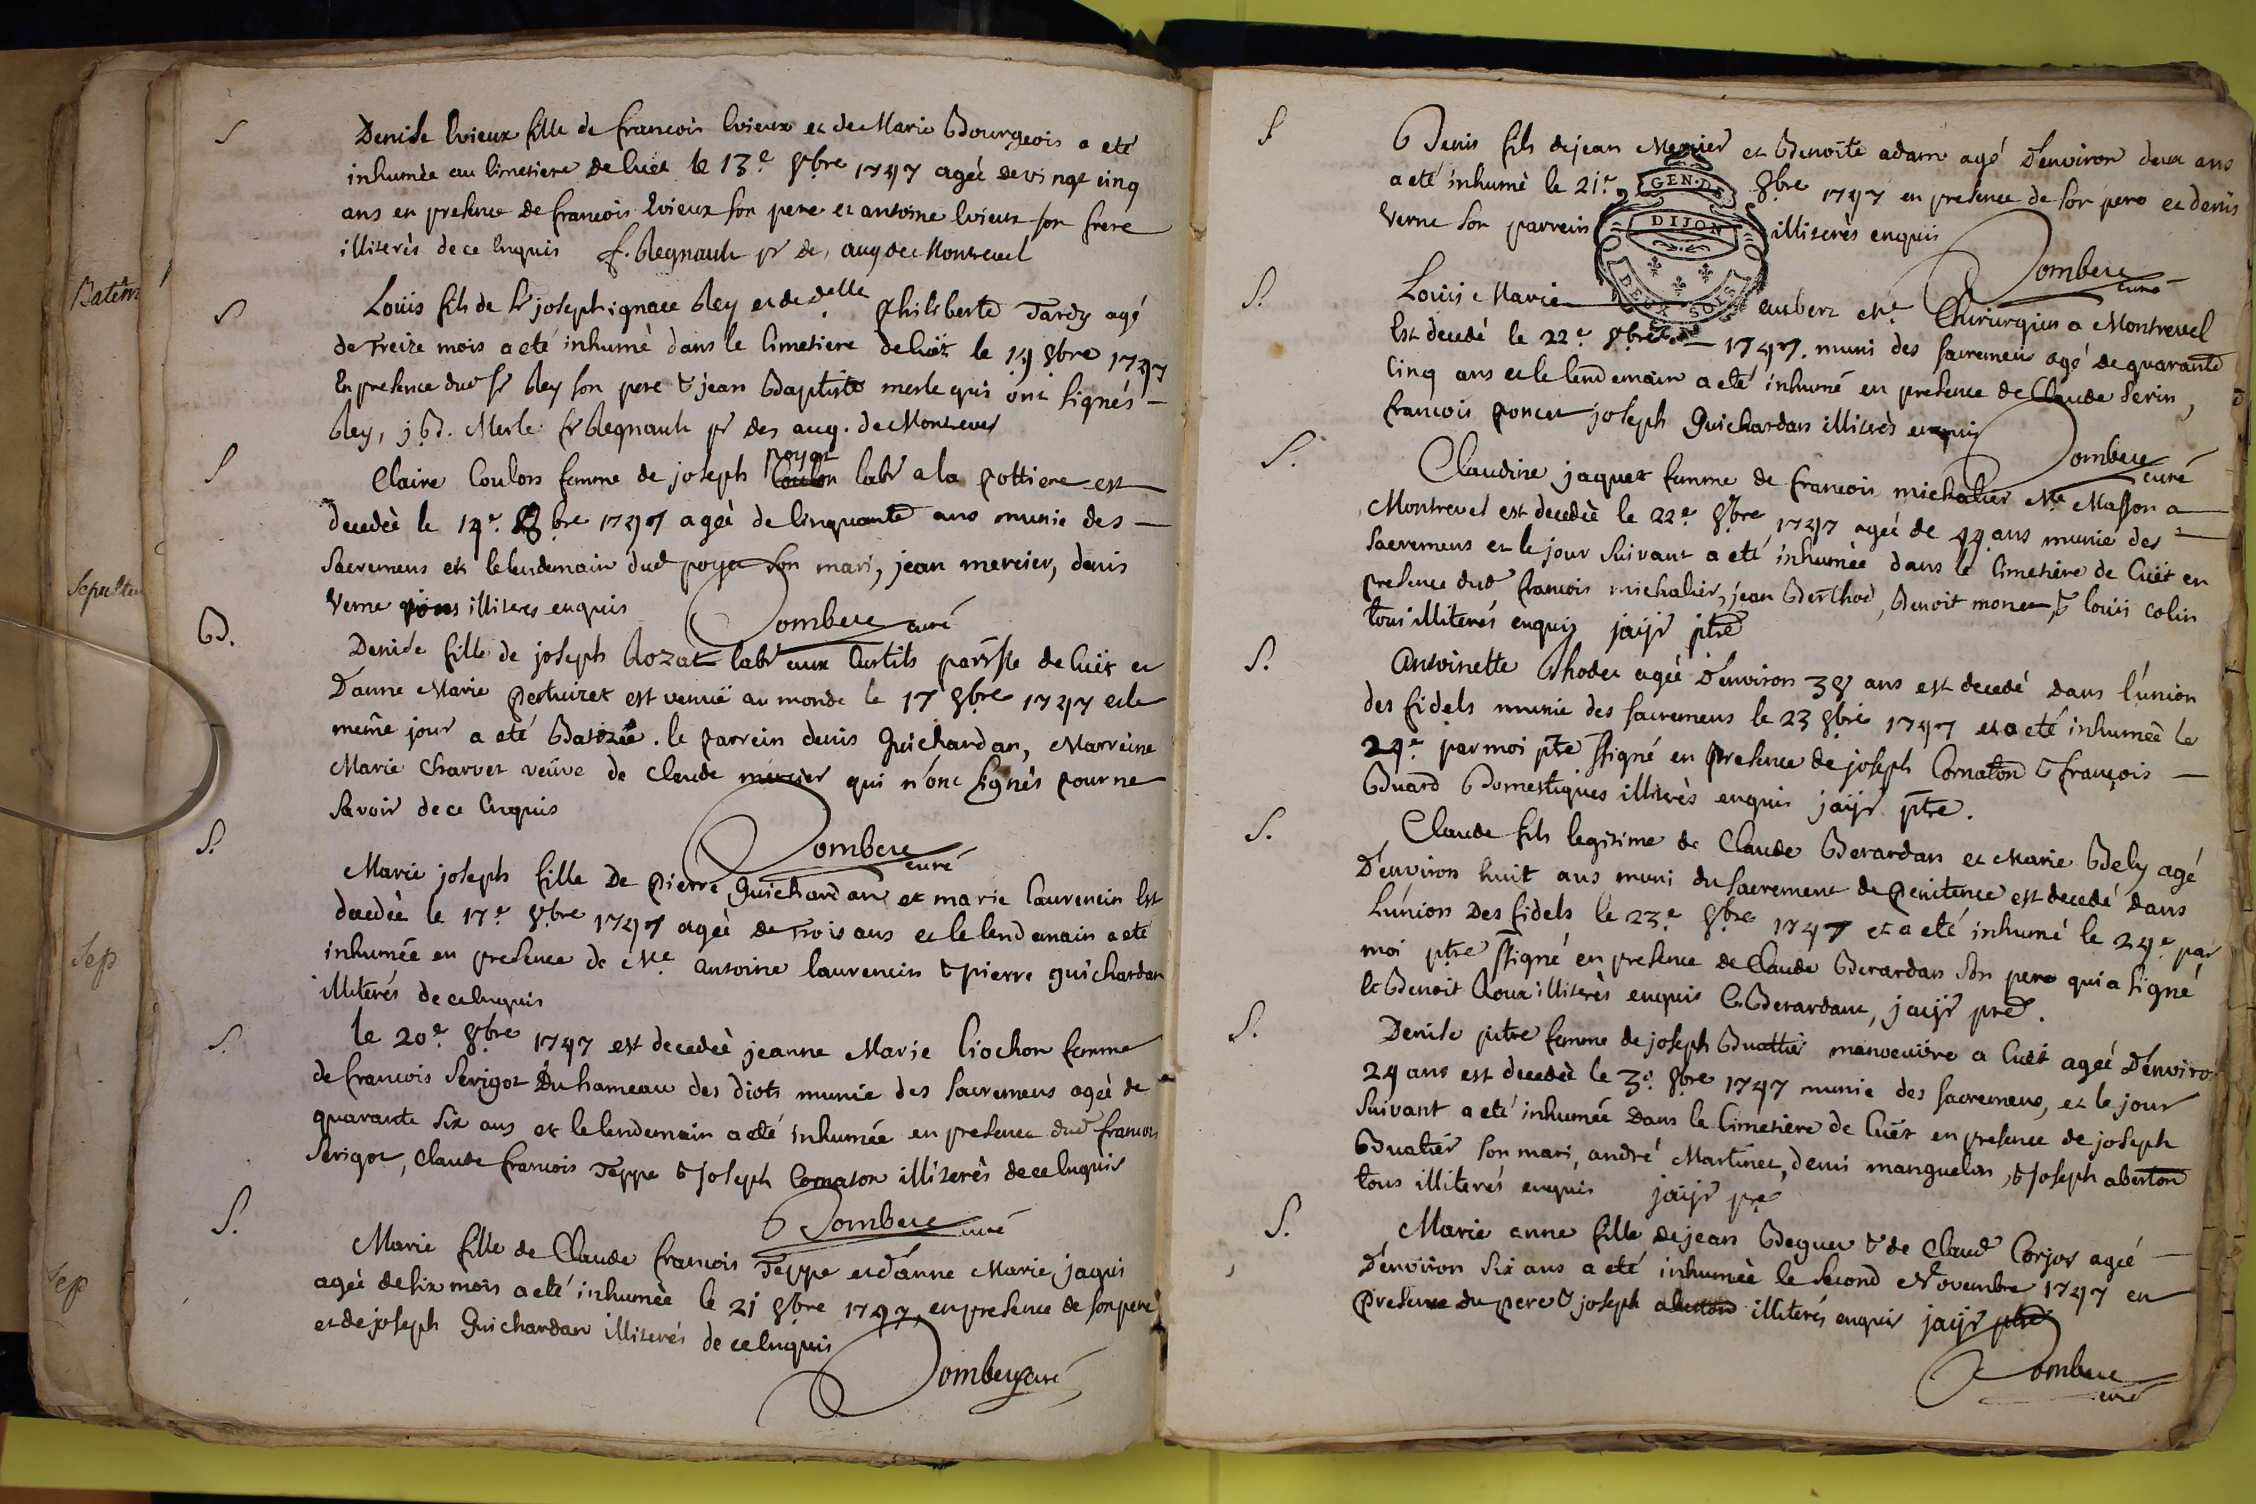 Batêm
Sepultu
Sep
Sep
S
Denise Evieux fille de francois Evieux et de Marie Bourgeois a eté
inhumèe au Cimetiere de Cuët le 13.e 8bre 1747 ageè de vingt cinq
ans en presence de francois Evieux son pere et antoine Evieux son frere
illiterès de ce Enquis f. Regnault pr des aug de Montrevel
S
Louis fils de Sr joseph ignace Rey et de delle Philiberte Tardy agé
de treize mois a eté inhumè dans le Cimetiere de Cuët le 14 8bre 1747
En presence dud Sr Rey son pere & jean Baptiste merle qui ont signés
Rey, j. B. Merle fr Regnault pr des aug. de Montrevel
S
Claire Coulon femme de joseph poyat labr a la pottiere est
decedeè le 14.e 8bre 1747 ageè de Cinquante ans munie des
Sacremens et le lendemain dud poyat son mari, jean mercier, denis
Verne illiteres enquis Dombeye curé
B.
Denise fille de joseph Rozat labr aux Curtils parsse de Cuët et
D'anne Marie Pertuizet est venuë au monde le 17 8bre 1747 et le
même jour a eté Batizèe. le parrein denis Guichardan, Marreine
Marie Charvet veüve de Claude mercier qui n'ont signés pour ne
Savoir de ce Enquis
Dombeye curé
S.
Marie joseph fille De pierre Guichardan et marie Laurencin Est
decedèe le 17.e 8bre 1747 ageè de trois ans et le lendemain a eté
inhumèe en presence de Me antoine laurencin & pierre guichardan
illiterés de ce Enquis
S.
le 20.e 8bre 1747 est decedeè jeanne Marie Ciochon femme
de francois Serigot Du hameau des diots munie des Sacremens ageè de
quarante six ans et le lendemain a eté inhumèe en presence dud francois
Serigot, Claude francois Teppe & joseph Cornaton illiterès de ce Enquis
Dombeye curé
S.
Marie fille de Claude francois Teppe et d'anne Marie jaquis
ageè de six mois a eté inhumèe le 21 8bre 1747, en presence de son pere
et de joseph Guichardan illiterés de ce Enquis
Dombeye curé
S
Denis fils de jean Mercier et Benoite adam agé D'environ deux ans
a eté inhumè le 21.e 8bre 1747 en presence de son pere et denis
Verne son parrein illiterès enquis
Dombeye curé
GEN. DE
DIJON
DEUX SOLS
S.
Louis Marie aubert Me Chirurgien a Montrevel
Est decedé le 22.e 8bre 1747. muni des sacremens agé de quarante
Cinq ans et le lendemain a eté inhumé en presence de Claude Serin,
francois poncet joseph Guichardan illiterés enquis
Dombeye curé
S.
Claudine jaquet femme de francois michalier Me Masson a
Montrevel est decedèe le 22.e 8bre 1747 ageè de 44 ans munie des
Sacremens et le jour suivant a eté inhumèe dans le Cimetière de Cuët en
presence dud francois michalier, jean Berthod, Benoit monet, & louis Colin
tous illiterés enquis jaijr ptre
S.
Antoinette Rhodet ageè D'environ 38 ans est decedé dans l'union
des fidels munie des sacremens le 23 8bre 1747 et a eté inhumeè le
24.e par moi ptre ssigné en presence de joseph Cornaton & françois
Buard Domestiques illiterès enquis jaijr ptre.
S.
Claude fils legitime de Claude Berardan et Marie Bely agé
D'environ huit ans muni du sacrement de penitence est decedé dans
L'union Des fidels le 23.e 8bre 1747 et a eté inhumé le 24.e par
moi ptre ssigné en presence de Claude Berardan son pere qui a signé
et Benoit Roux illiterès enquis C. Berardant, jaijr pre.
S.
Denise pitre femme de joseph Buattier manoeuvre a Cuët ageè D'environ
24 ans est decedèe le 30 8bre 1747 munie des sacremens, et le jour
suivant a eté inhumèe Dans le Cimetière de Cuët en presence de joseph
Buatier son mari, andré Martinet, denis manguelin, & joseph aberton
tous illiterés enquis jaijr pre
S.
Marie anne fille de jean Beguet & de Claude Corjor ageè
D'environ six ans a eté inhumèe le second Novembre 1747 en
presence du pere & joseph illiterés enquis jaijr ptre
Dombeye
curé